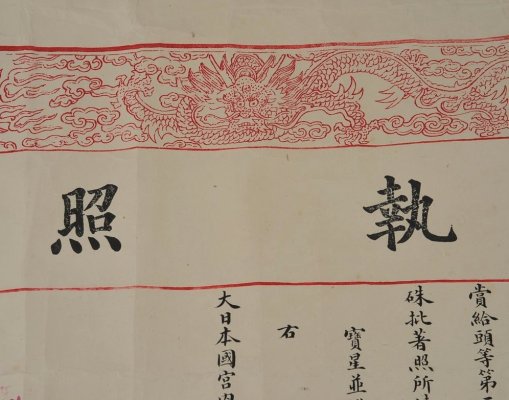 執照
賞給頭等第
硃批著照所
寶星並
右
大日本國宮內